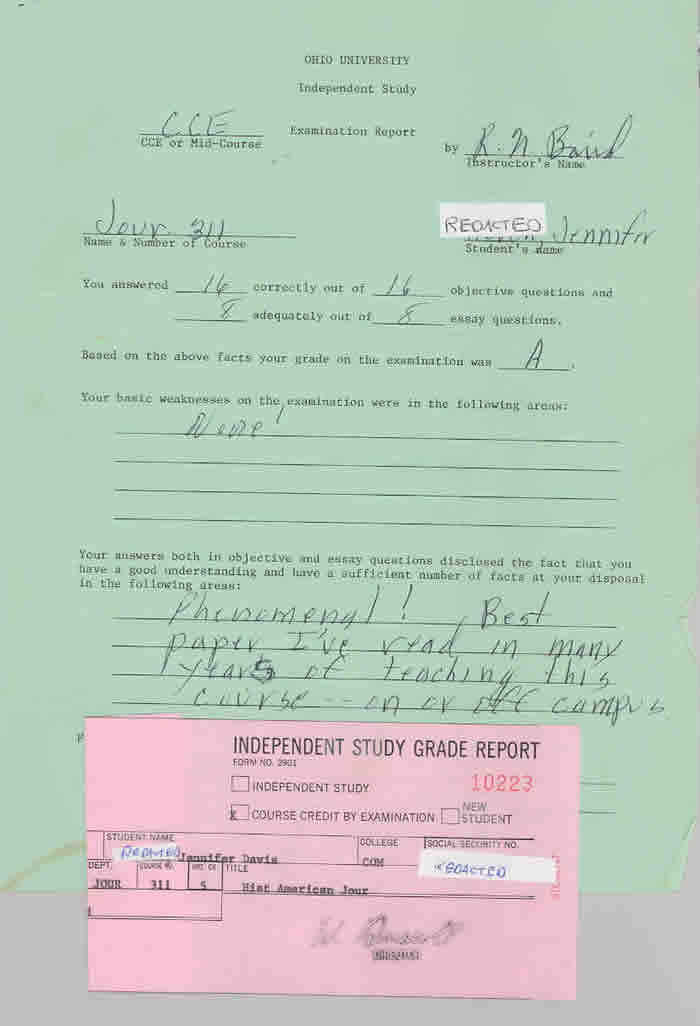 OHIO UNIVERSITY
Independent Study
CCE
Examination Report
CCE or Mid-Course
by R. N. Baird
Instructor's Name
Jour. 311
REDACTED Jennifer
Name & Number of Course
Student's name
You answered 16 correctly out of 16 objective questions and
8 adequately out of 8 essay questions.
Based on the above facts your grade on the examination was A.
Your basic weaknesses on the examination were in the following areas:
None!
Your answers both in objective and essay questions disclosed the fact that you
have a good understanding and have a sufficient number of facts at your disposal
in the following areas:
Phenomenal! Best
paper I've read in many
years of teaching this
course -- on or off campus
INDEPENDENT STUDY GRADE REPORT
FORM NO. 2901
10223
INDEPENDENT STUDY
X COURSE CREDIT BY EXAMINATION
NEW STUDENT
STUDENT NAME
COLLEGE
SOCIAL SECURITY NO.
REDACTED Jennifer Davis
COM
REDACTED
DEPT.
COURSE NO.
TITLE
JOUR 311 5 Hist American Jour